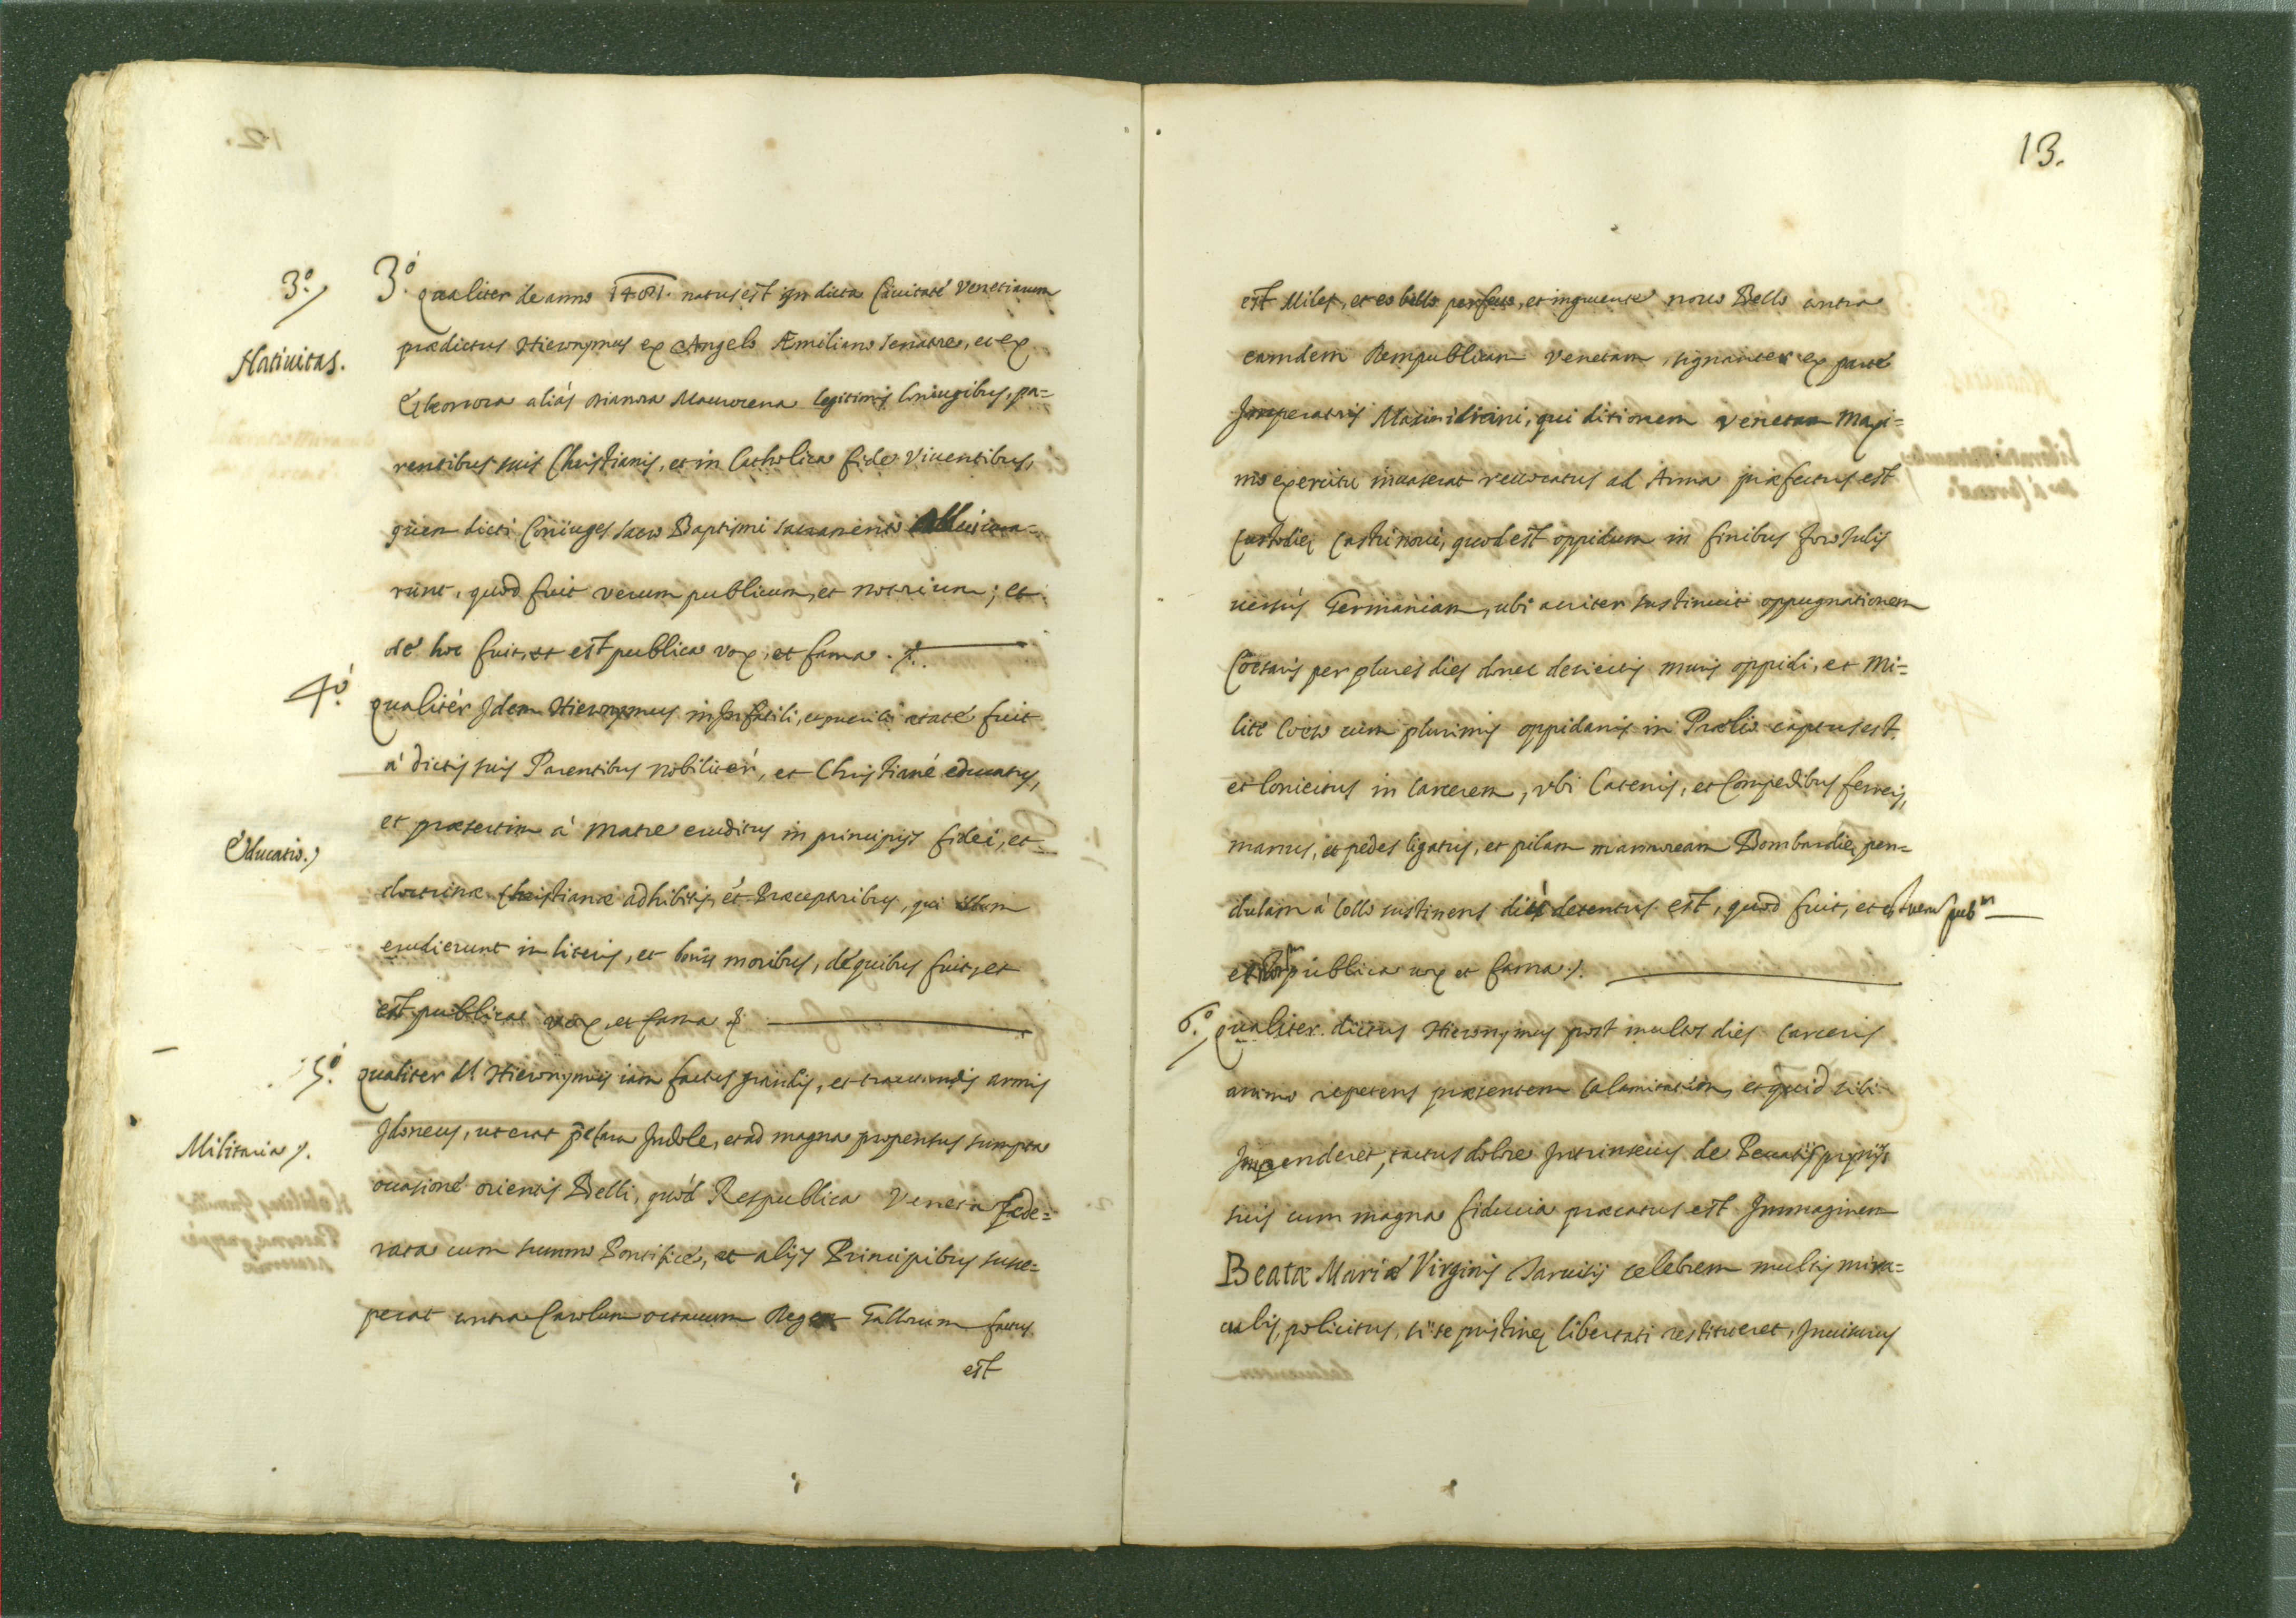 3.º
Natiuitas.
3.º qualiter de anno 1481. natus est in dicta Ciuitate Venetiarum
prædictus Hieronymus ex Angelo Æmiliano Senatore, et ex
Eleonora aliàs Dianora Maurocena legitimis Coniugibus, pa=
rentibus suis Christianis, et in Catholica fide Viuentibus,
quem dicti Coniuges sacro Baptismi sacramento
runt, quod fuit verum publicum, et notorium; et
de hoc fuit, et est publica vox, et fama.
4.º
qualitér Idem Hieronymus in Infantili, et puerili ætate fuit
à dictis suis Parentibus nobilitér, et Christiané educatus,
Educatio.
et præsertim à Matre eruditus in principijs fidei, et
doctrinæ Christianæ adhibitis, et Præceptoribus, qui illum
erudierunt in literis, et bonis moribus, dé quibus fuit, et
est publica vox, et fama
5.º
qualiter d. Hieronymus iam factus grandis, et tractandis armis
Idoneus, ut erat præclara Indole, et ad magna propensus sumpta
Militaria.
occasioné orientis Belli, quòd Respublica Veneta fæde=
rata cum summo Pontificé, et alijs Principibus susce=
perat contra Carolum octauum Regem Gallorum factus
est
13.
est Miles, et eo bello perfuncto, et ingruente nouo Bello contra
eamdem Rempublicam Venetam, signanter ex parte
Imperatoris Maximiliani, qui ditionem Venetam Maxi=
mo exercitu inuaserat reuocatus ad Arma præfectus est
Custodiæ Castri noui, quod est oppidum in finibus foro Julij
uersus Germaniam, ubi acriter sustinuit oppugnationem
Cæsaris per plures dies donec deiectis muris oppidi, et Mi=
lite cæso cum plurimis oppidanis in Prælio captus est,
et Coniectus in Carcerem, vbi Catenis, et Compedibus ferreis,
manus, et pedes ligatus, et pilam marmoream Bombardiæ, pen=
dulam à Collo sustinens diù detentus est, quod fuit, et est uerum pub.m
et not.m publica uox et fama.
6.º qualiter dictus Hieronymus post multos dies Carceris
animo repetens præsentem Calamitatem, et quid sibi
Impenderet, tactus dolore Intrinsecus de Peccatis proprijs
suis cum magna fiducia præcatus est Immaginem
Beatæ Mariæ Virginis Taruisij celebrem multis mira=
culis, policitus, si se pristinæ libertati restitueret, Inuisurus